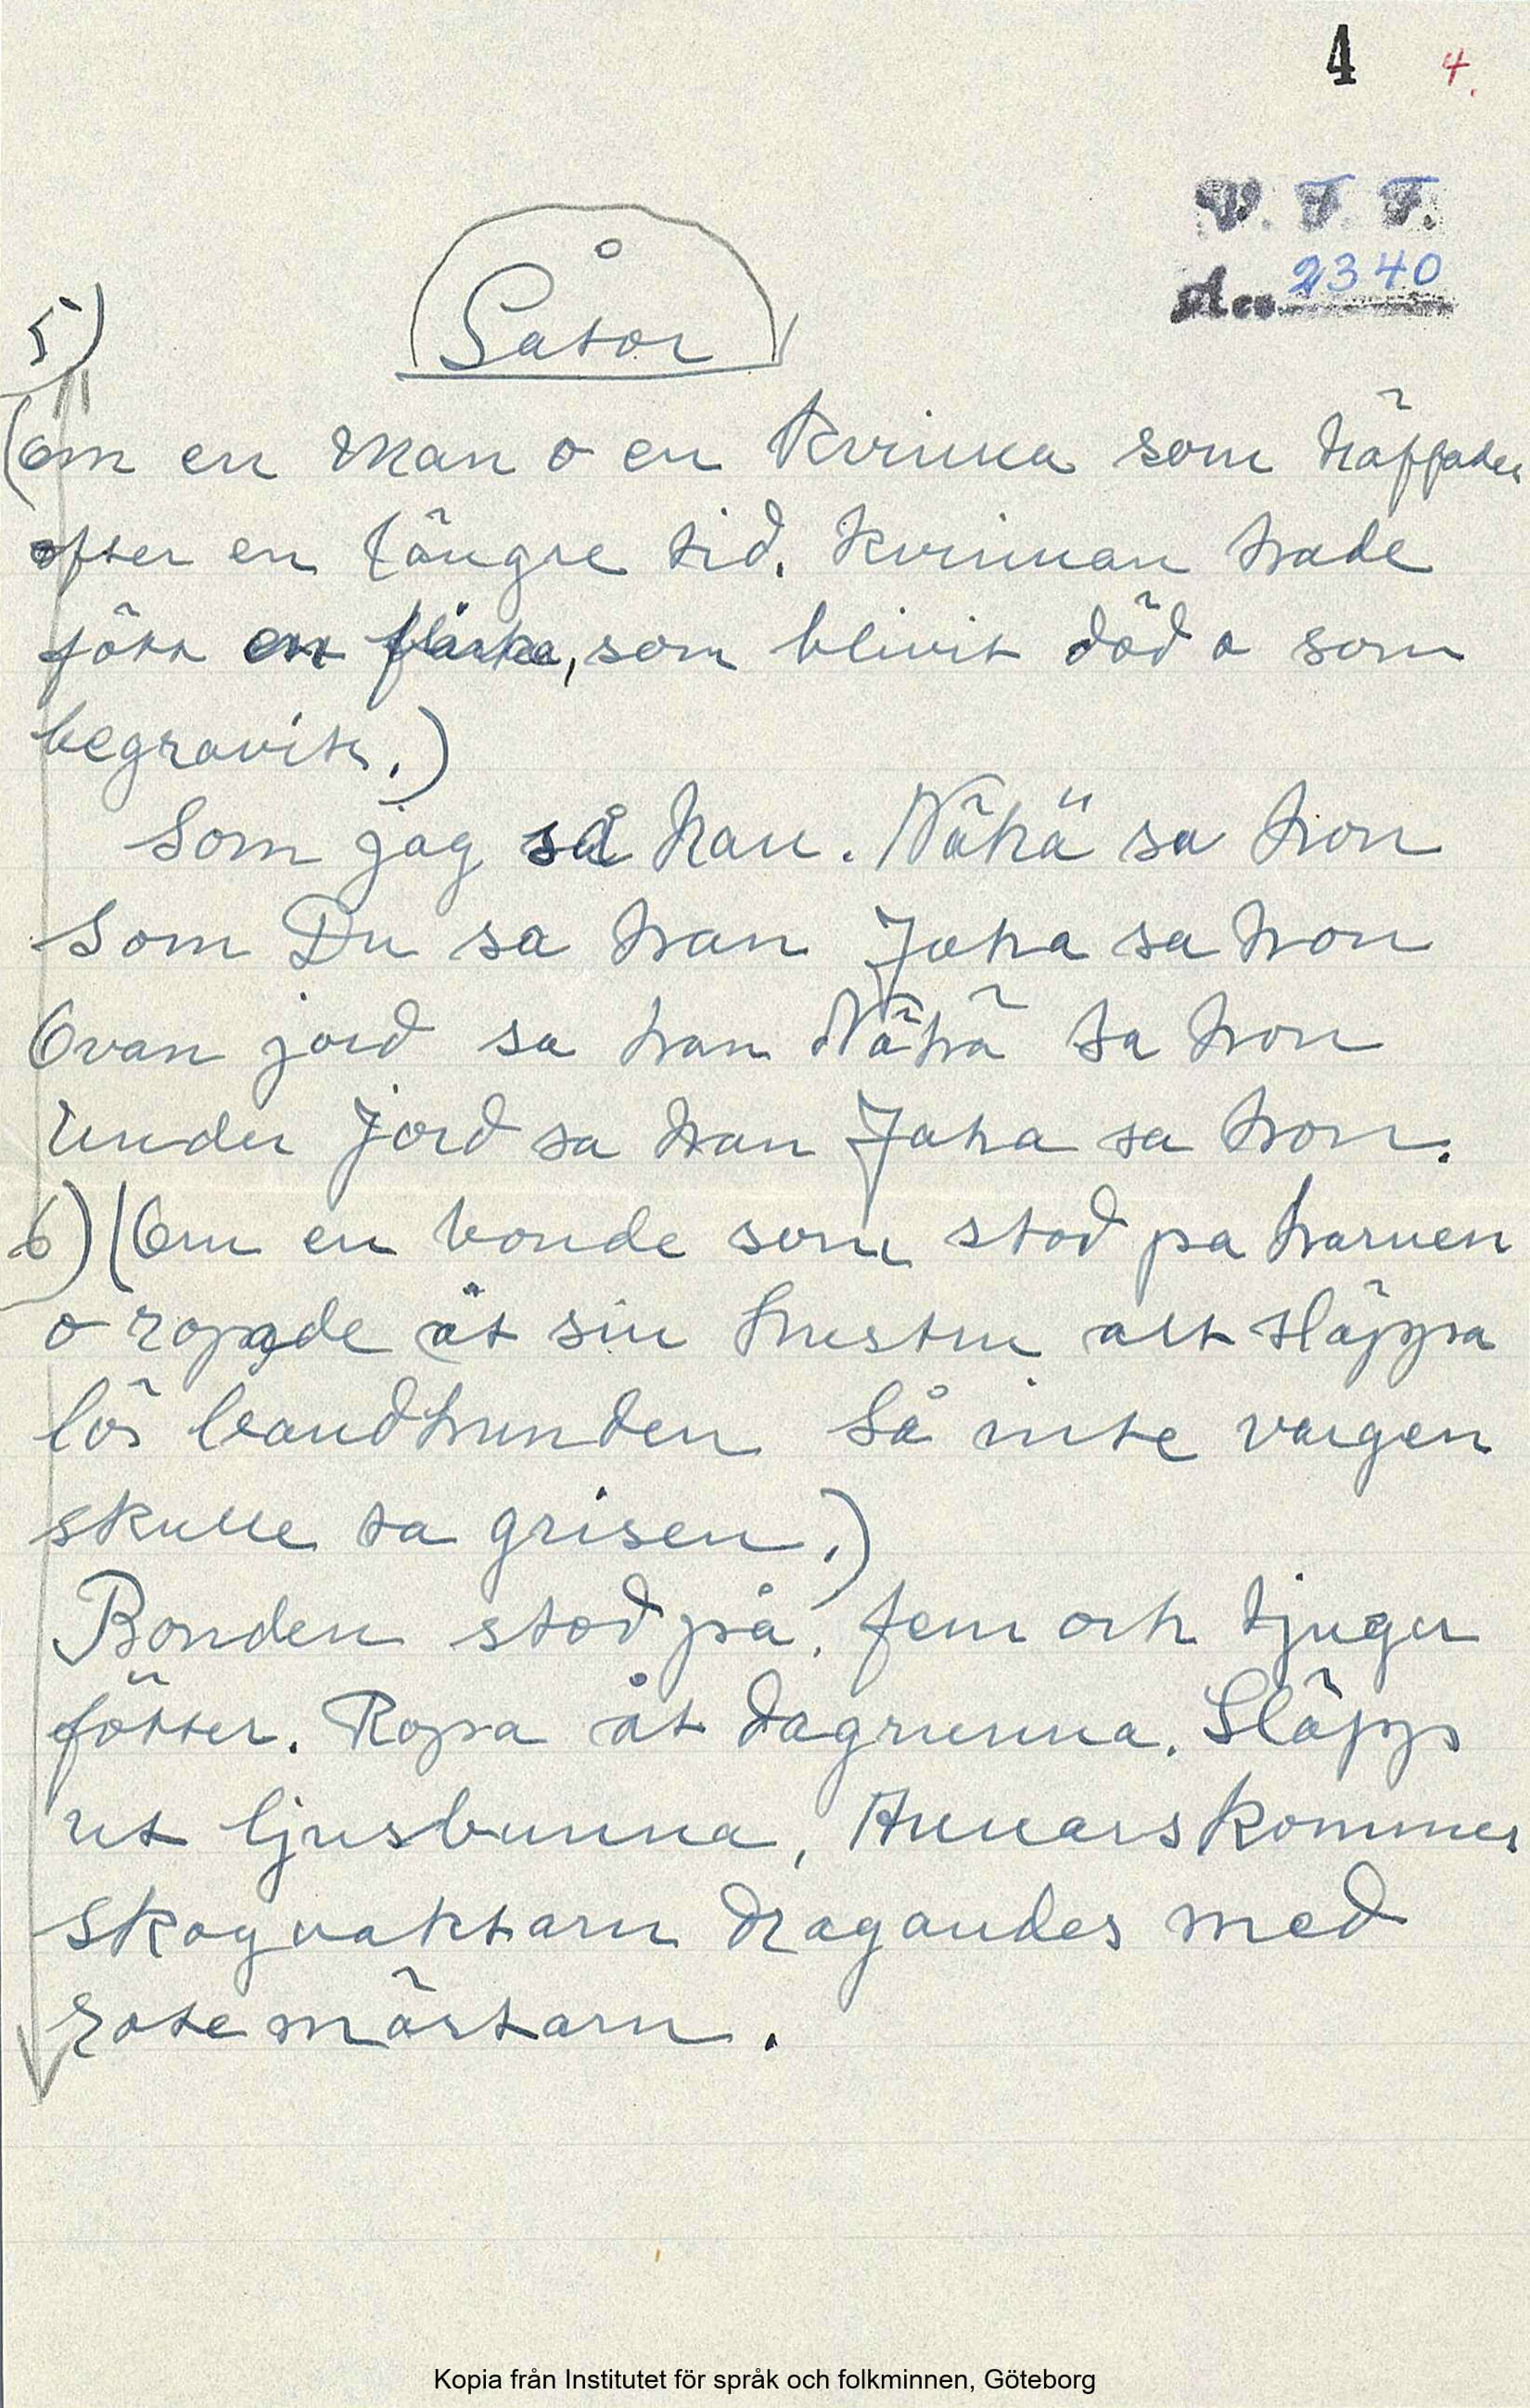 4 4.
V. F. F.
Acc. 2340
Gåtor
5)
(Om en man o en kvinna som träffades
efter en längre tid. Kvinnan hade
fött en flicka, som blivit död o som
begravits.)
Som jag så han. Nähä sa hon
Som Du sa han Jaha sa hon
Ovan jord sa han Nähä sa hon
Under jord sa han Jaha sa hon.
6) (Om en bonde som stod på harven
o ropade åt sin hustru att släppa
lös bandhunden så inte vargen
skulle ta grisen.)
Bonden stod på fem och tjugu
fötter. Ropa åt dagrunna. Släpp
ut ljusbunna, Annars kommer
Skogvaktarn dragandes med
rotemästarn.
Kopia från Institutet för språk och folkminnen, Göteborg